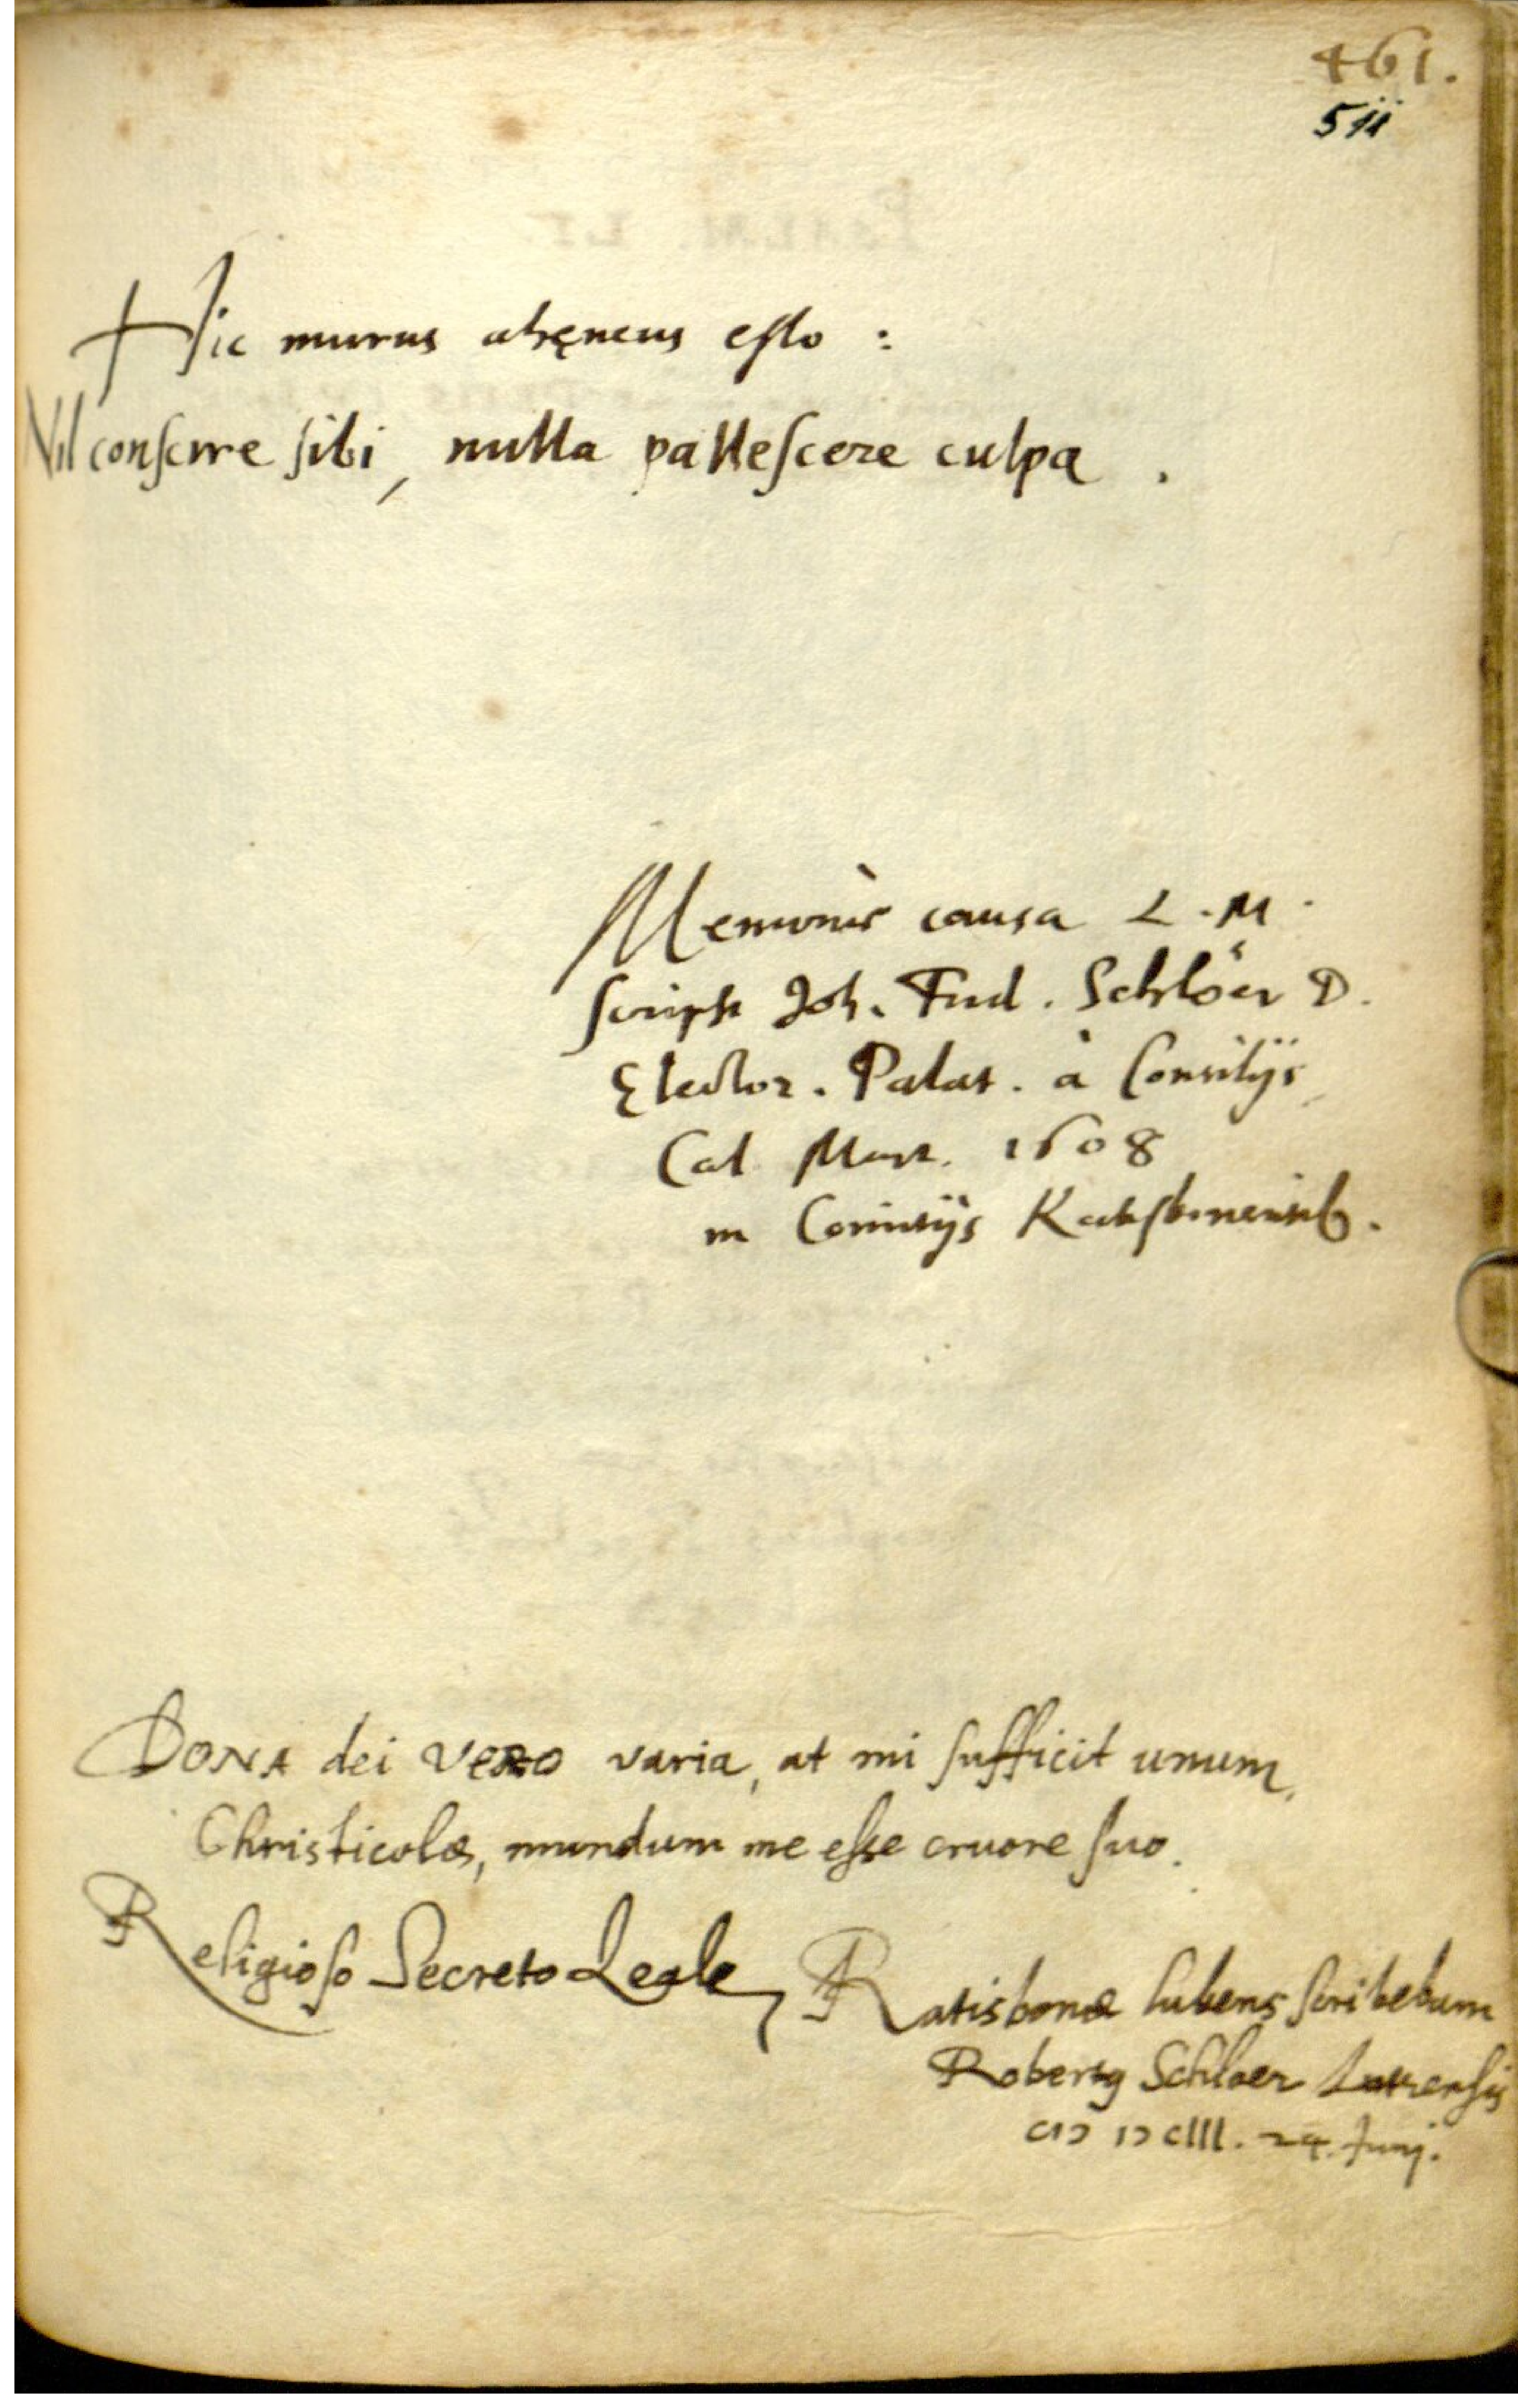 461.
511
Hic murus ahęneus esto :
Nil conscire sibi, nulla pallescere culpa .
Memoriæ causa L. M.
scripsit Joh. Frid. Schlöer D.
Elector. Palat. à Consilijs
Cal Mart. 1608
in Comitijs Ratisbonensib.
DONA dei VERO varia, at mi sufficit unum,
Christicolæ, mundum me esse cruore suo.
Religioso Secreto Leale
Ratisbonæ lubens scribebam
Robertq Schloer Lutrensis
CIƆ IƆ CIII. 24. Junij.